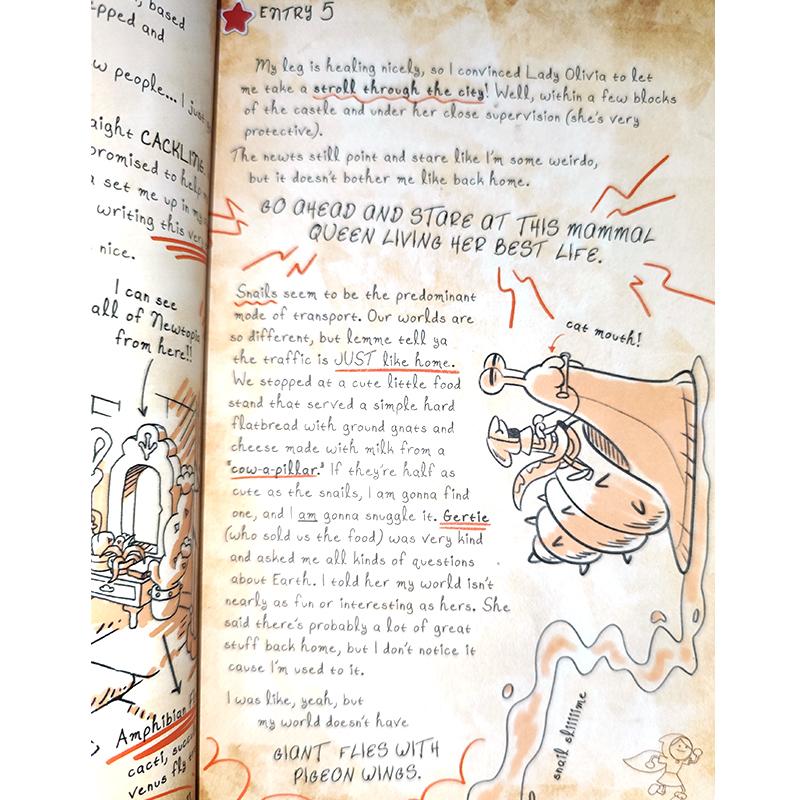 based
pped and
w people... I just
aight CACKLING.
promised to help
set me up in my
writing this very
nice.
I can see
all of Newtopia
from here!!
Amphibian
cacti, succu
venus fly
ENTRY 5
My leg is healing nicely, so I convinced Lady Olivia to let
me take a stroll through the city! Well, within a few blocks
of the castle and under her close supervision (she's very
protective).
The newts still point and stare like I'm some weirdo,
but it doesn't bother me like back home.
GO AHEAD AND STARE AT THIS MAMMAL
QUEEN LIVING HER BEST LIFE.
Snails seem to be the predominant
mode of transport. Our worlds are
so different, but lemme tell ya
the traffic is JUST like home.
We stopped at a cute little food
stand that served a simple hard
flatbread with ground gnats and
cheese made with milk from a
"cow-a-pillar." If they're half as
cute as the snails, I am gonna find
one, and I am gonna snuggle it. Gertie
(who sold us the food) was very kind
and asked me all kinds of questions
about Earth. I told her my world isn't
nearly as fun or interesting as hers. She
said there's probably a lot of great
stuff back home, but I don't notice it
cause I'm used to it.
I was like, yeah, but
my world doesn't have
GIANT FLIES WITH
PIGEON WINGS.
cat mouth!
snail sliiiime